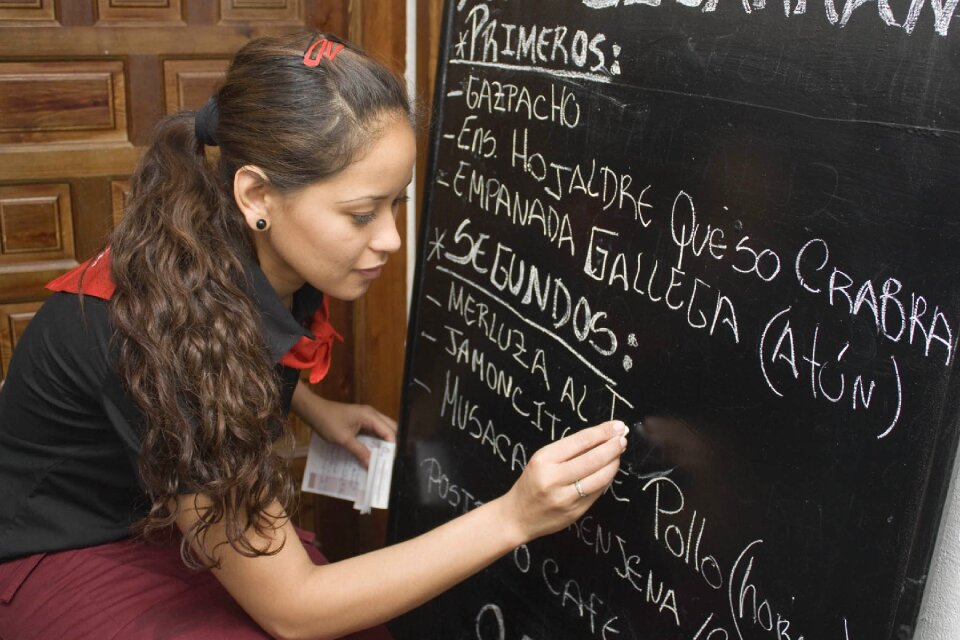 *PRIMEROS:
-GAZPACHO
-ENS. HOJALDRE QUESO CRABRA
-EMPANADA GALLEGA (ATÚN)
*SEGUNDOS:
-MERLUZA AL T
-JAMONCITO DE Pollo (hor
-MUSACA BERENJENA
POSTRE O CAFE